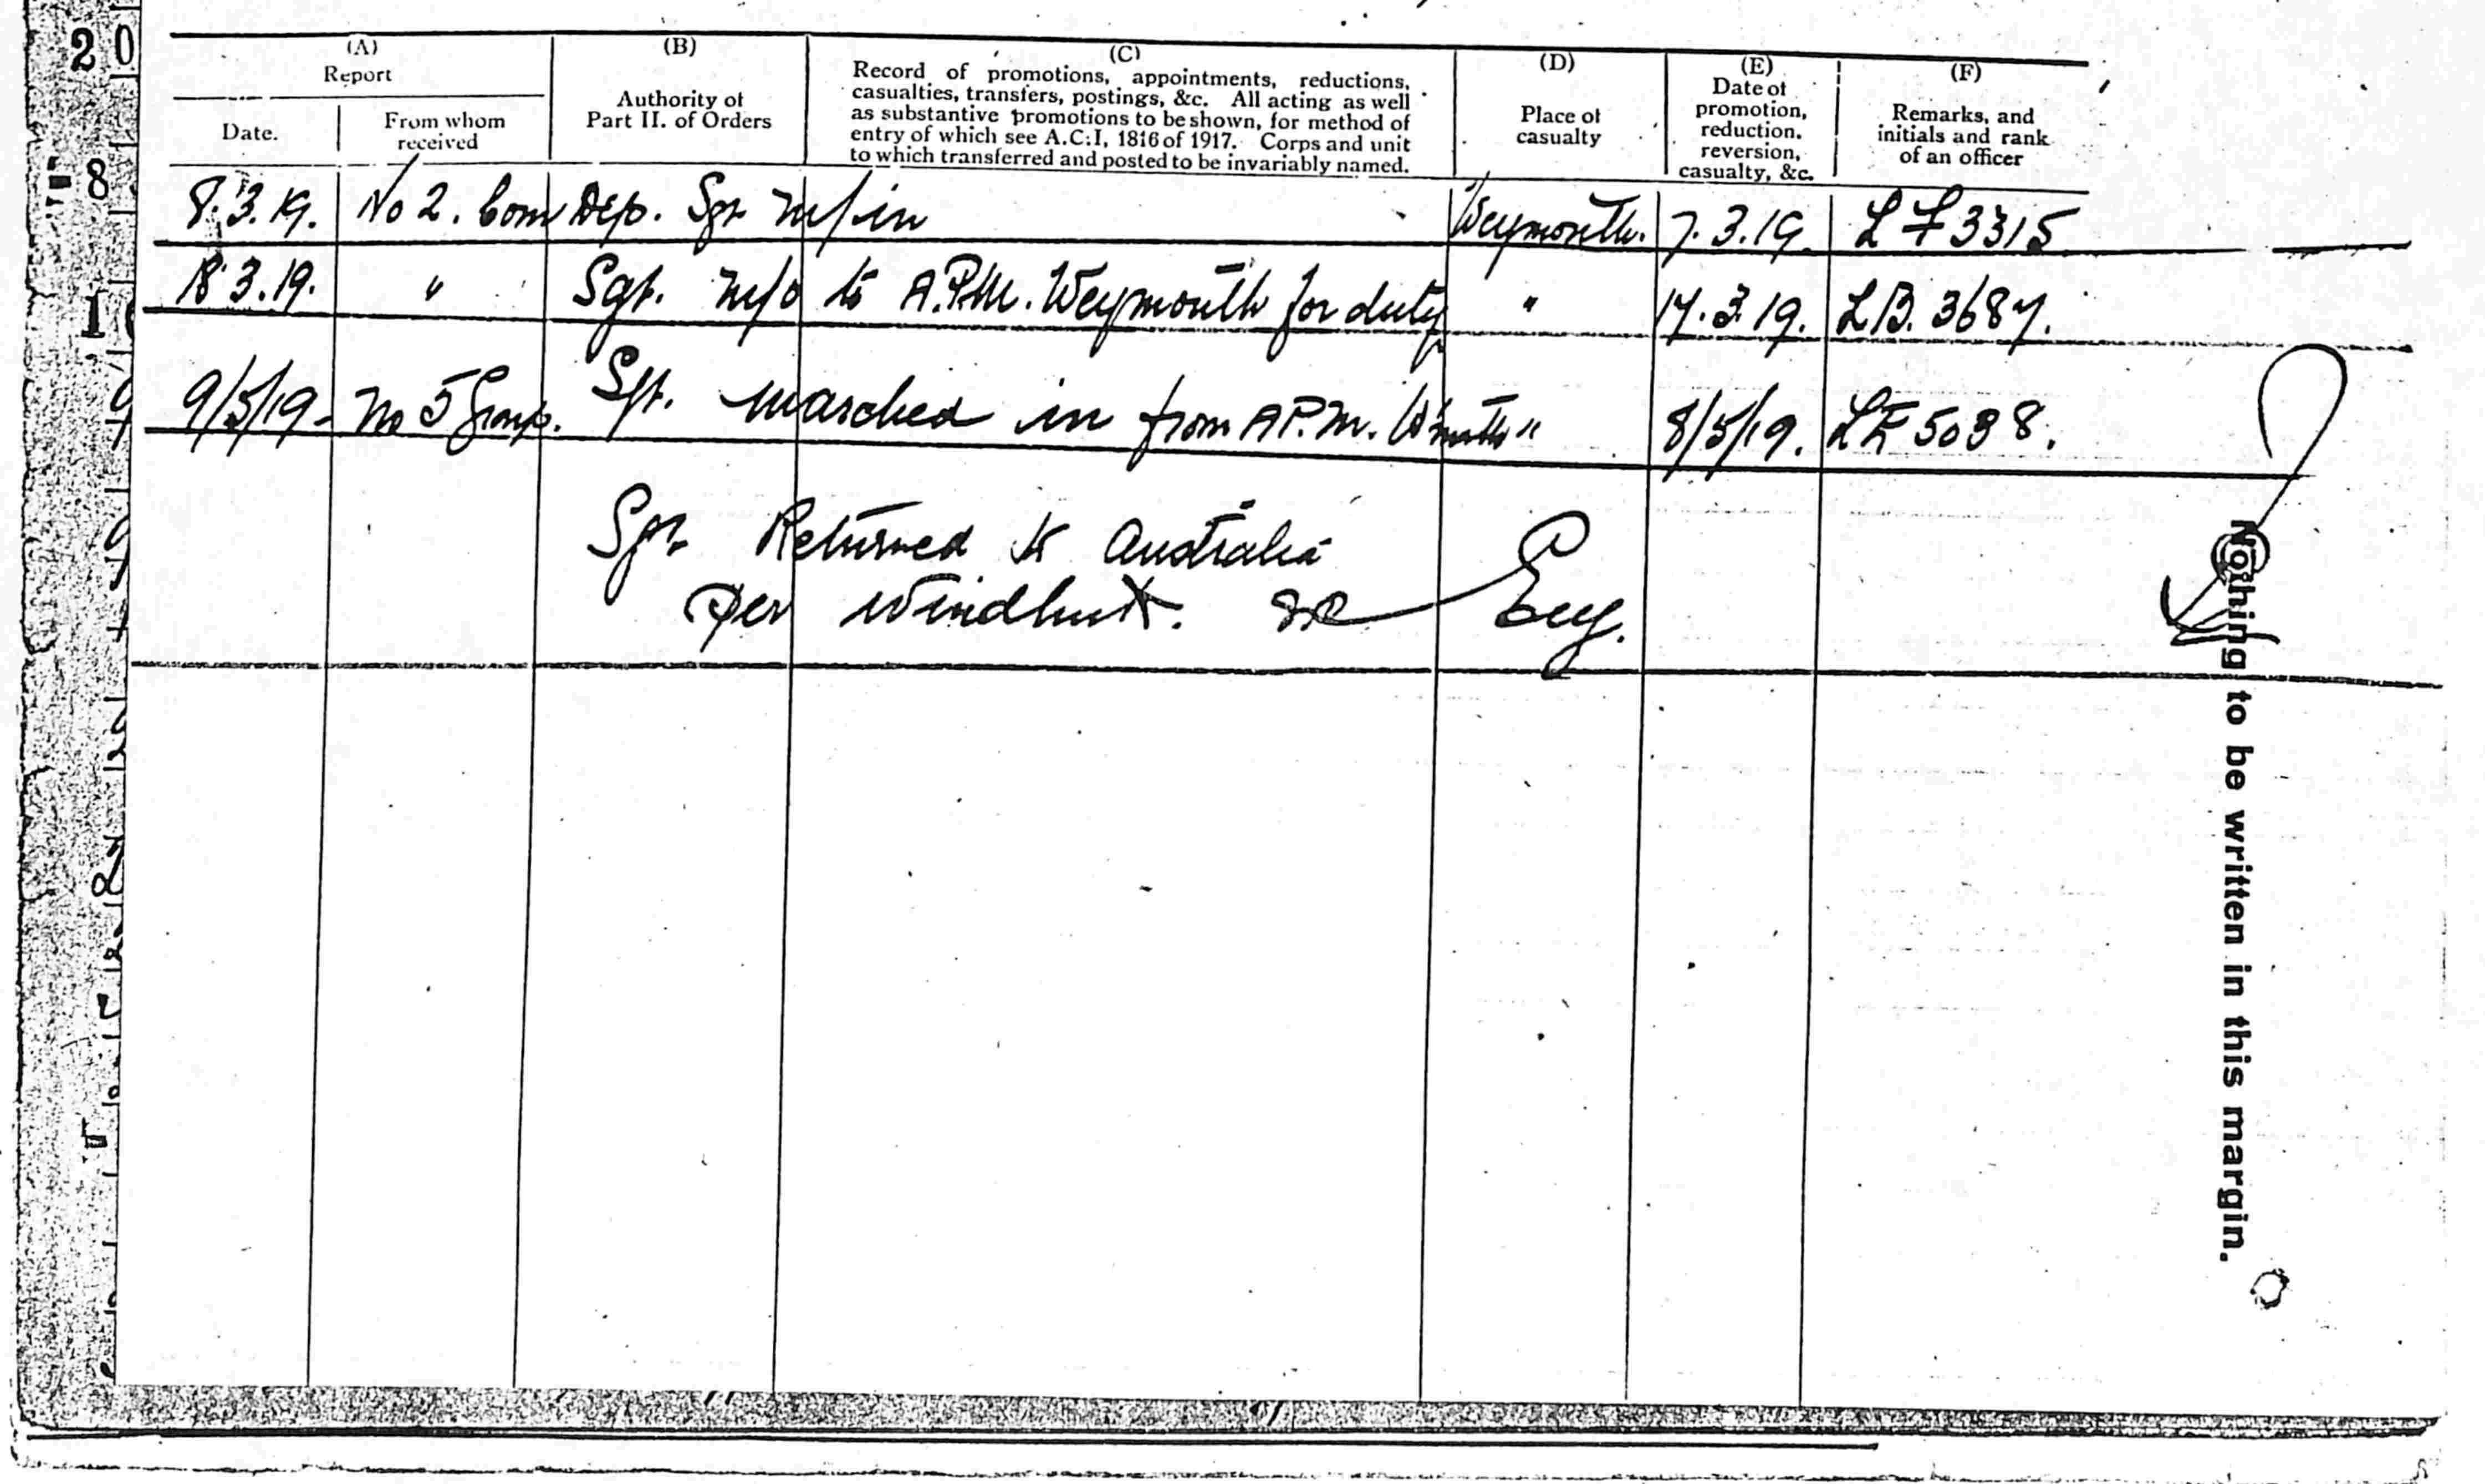 20
(A) (B) (C) (D) (E) (F)
Report
Date. From whom received
Authority of Part II. of Orders
Record of promotions, appointments, reductions,
casualties, transfers, postings, &c. All acting as well
as substantive promotions to be shown, for method of
entry of which see A.C.I, 1816 of 1917. Corps and unit
to which transferred and posted to be invariably named.
Place of casualty
Date of promotion, reduction, reversion, casualty, &c.
Remarks, and initials and rank of an officer
8
8.3.19. No 2. Com Dep. Sgt m/in Weymouth. 7.3.19. LF 3315
18.3.19. " Sgt. m/o to A.P.M. Weymouth for duty " 17.3.19. LB. 3687.
9/5/19 No 5 Group. Sgt. marched in from A.P.M. W'mouth " 8/5/19. LF 5038.
Sgt Returned to Australia
per Windhuk.
Nothing to be written in this margin.